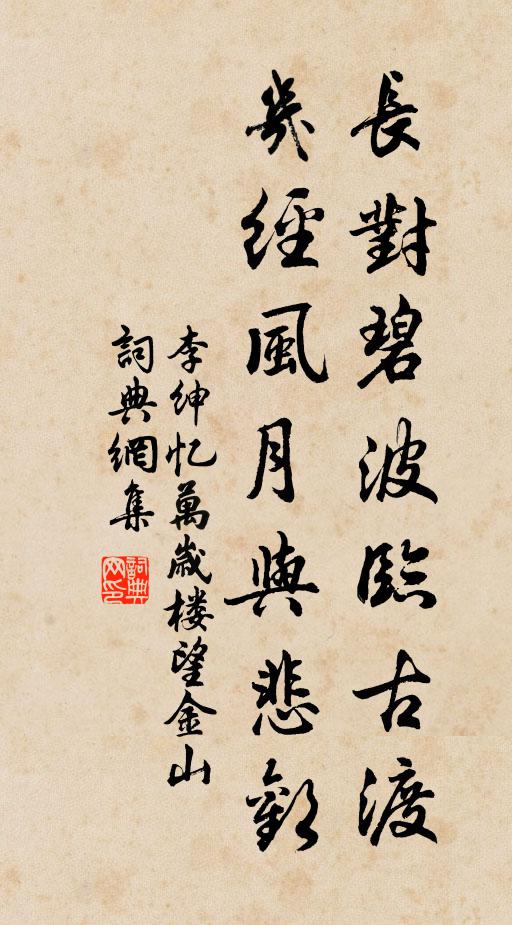 長對碧波臨古渡
幾經風月與悲歡
李紳忆萬歲楼望金山
詞典網集
詞典网印